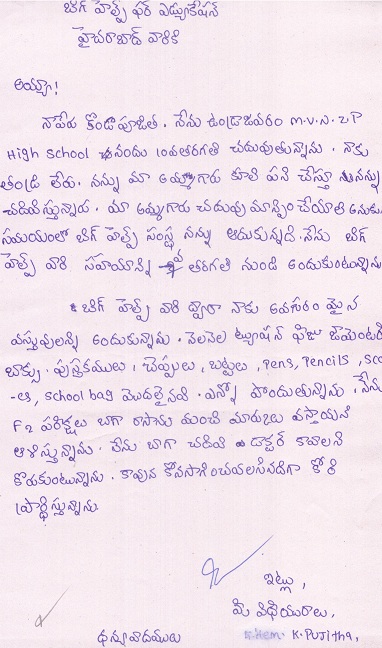 బిగ్ హెల్ప్ ఫర్ ఎడ్యుకేషన్
హైదరాబాద్ వారికి
అయ్యా!
నాపేరు కొండా పూజిత. నేను ఉండ్రాజవరం M.V.N. Z.P
High School నందు 10వతరగతి చదువుతున్నాను. నాకు
తండ్రి లేరు. నన్ను మా అమ్మగారు కూలి పని చేస్తూ నన్ను
చదివిస్తున్నారు. మా అమ్మగారు చదువు మాన్పిం చేయాలి అనుకు
సమయంలో బిగ్ హెల్ప్ సంస్థ నన్ను ఆదుకున్నది. నేను బిగ్
హెల్ప్ వారి సహాయాన్ని తరగతి నుండి అందుకుంటున్నాను
బిగ్ హెల్ప్ వారి ద్వారా నాకు అవసరం మైన
వస్తువులన్ని అందుకున్నాను. నెలనెల ట్యూషన్ ఫీజు జామెంటరీ
బాక్సు. పుస్తకములు, చెప్పులు, బట్టలు, Pens, Pencils, Sca
-es, School bag మొదలైనవి. ఎన్నో పొందుతున్నాను. నేను
F2 పరీక్షలు బాగా రాసాను మంచి మార్కులు వస్తాయని
ఆశిస్తున్నాను. నేను బాగా చదివి డాక్టర్ కావాలని
కోరుకుంటున్నాను. కావున కొనసాగించవలసినదిగా కోరి
ప్రార్థిస్తున్నాను
ఇట్లు,
మీ విధేయురాలు,
K. Pujitha,
ధన్యవాదములు